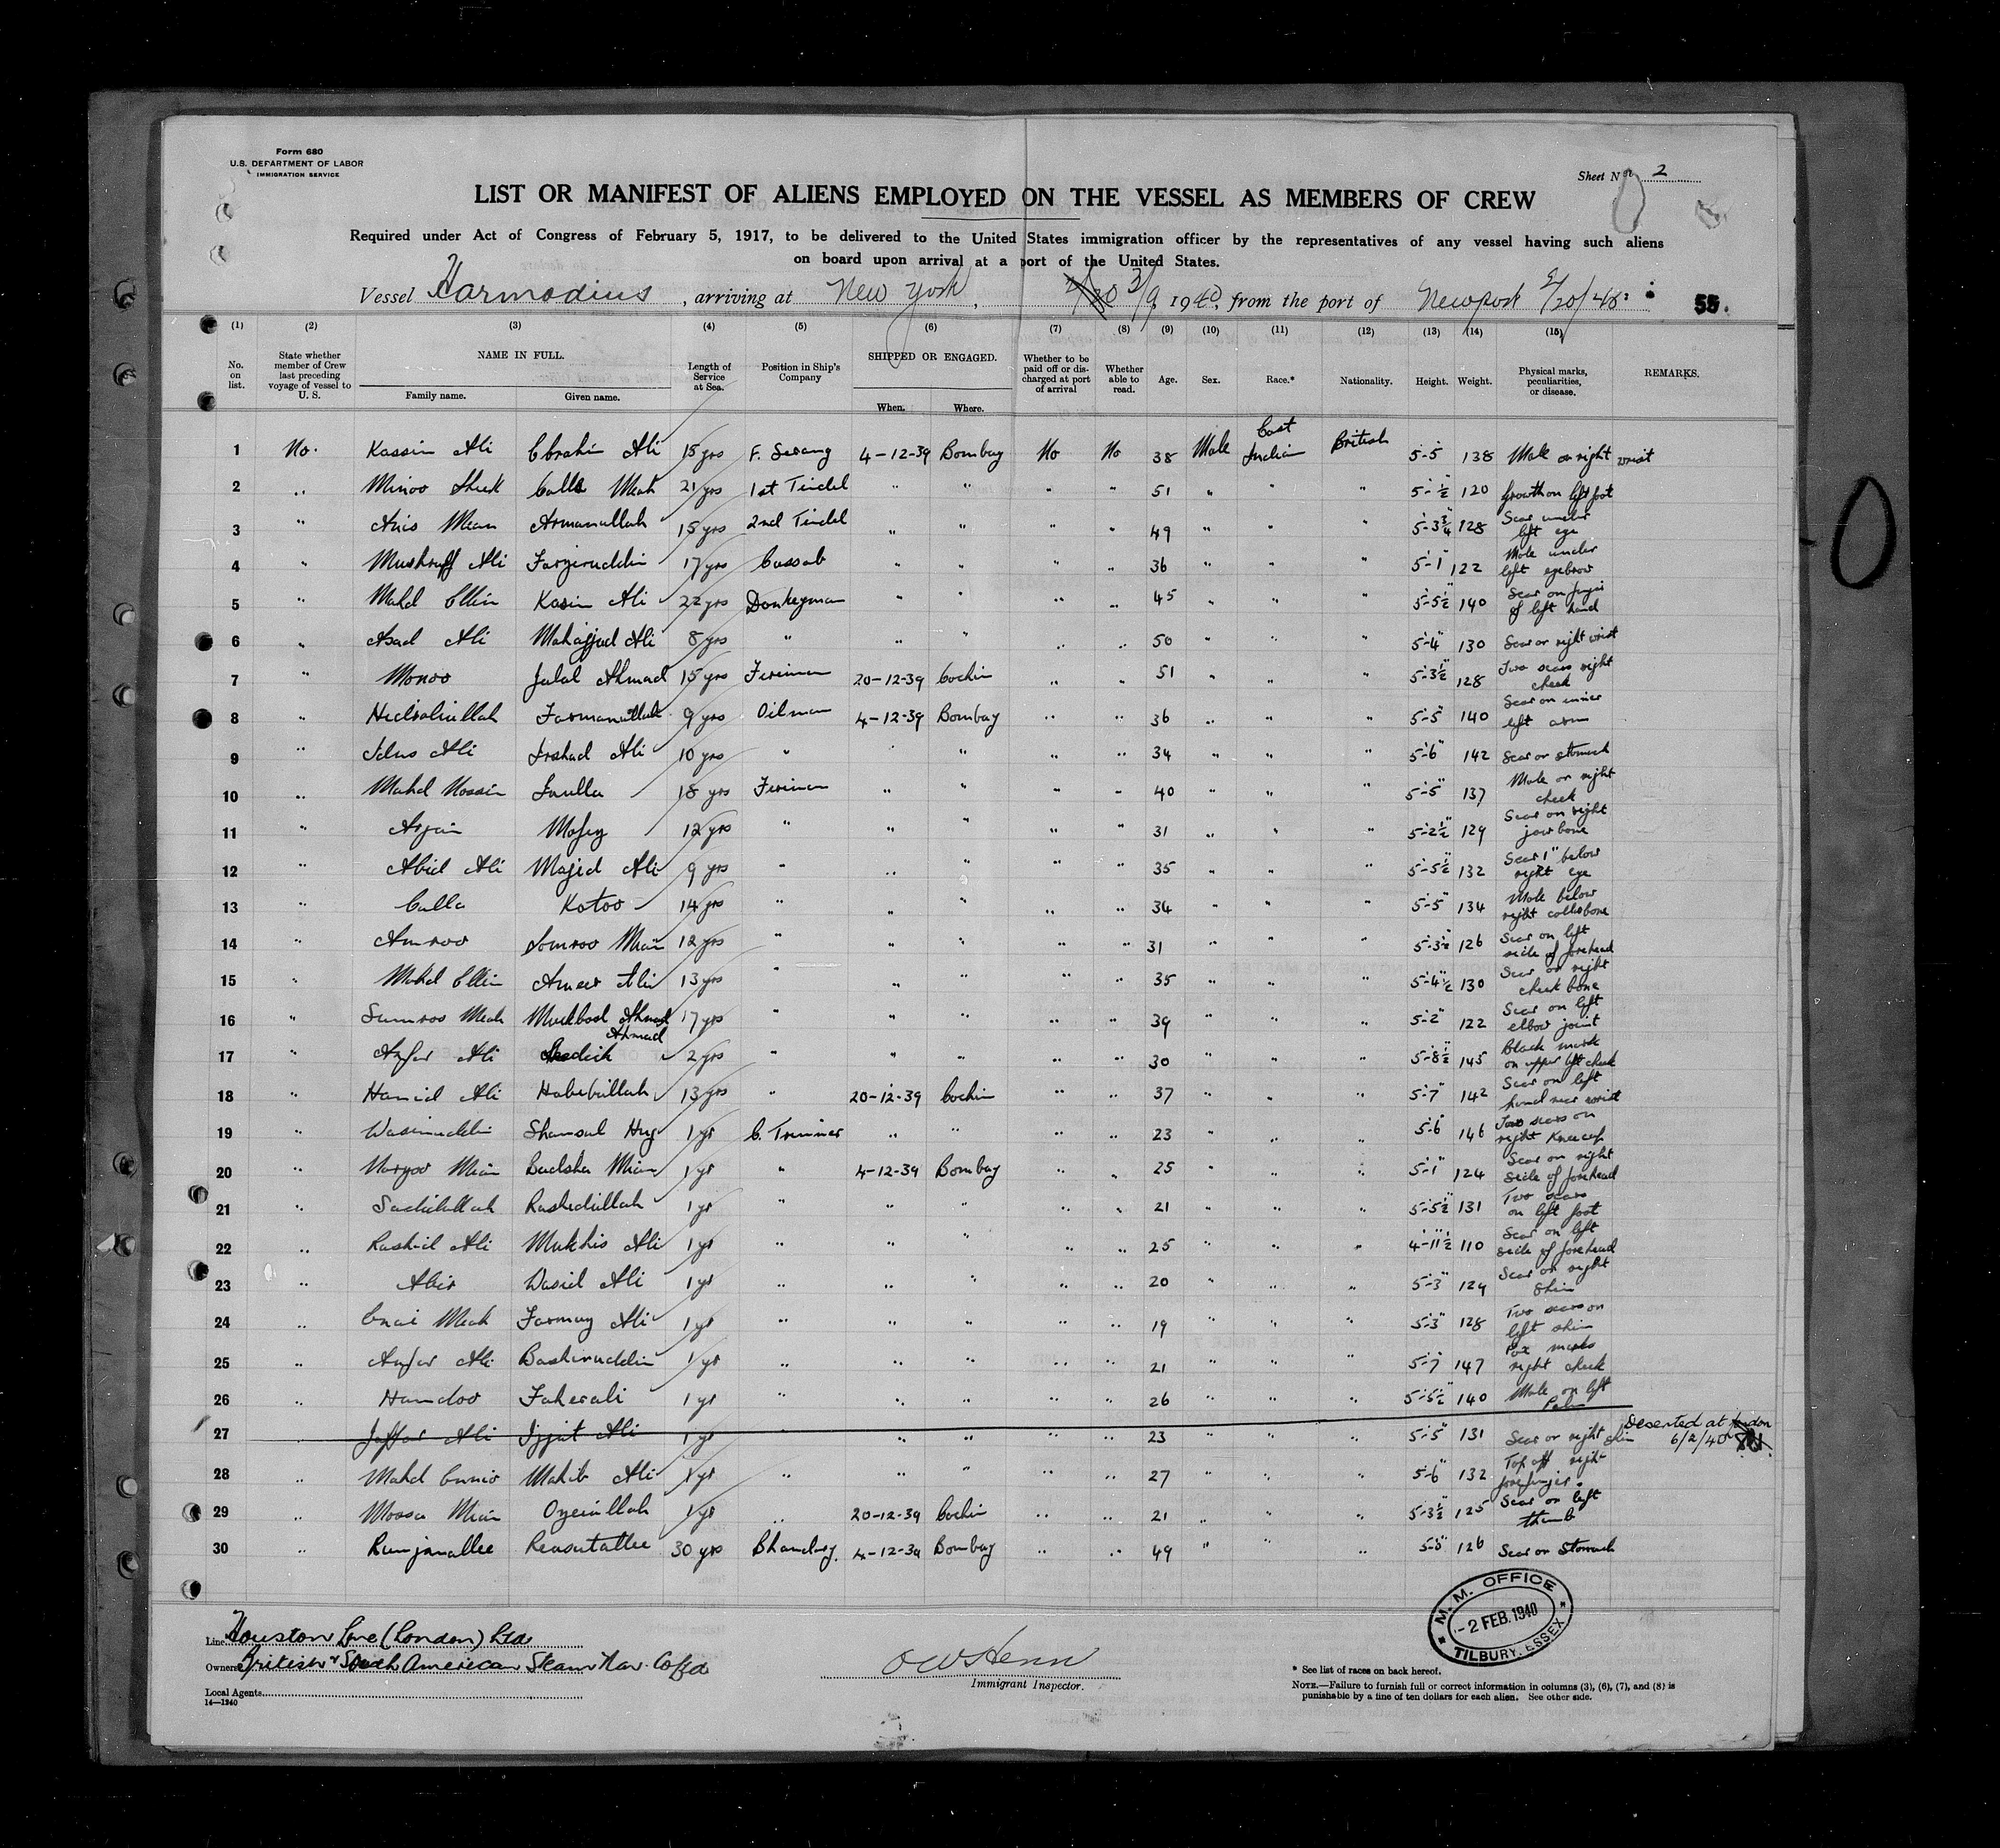 Form 680
U.S. DEPARTMENT OF LABOR
IMMIGRATION SERVICE
Sheet No. 2
LIST OR MANIFEST OF ALIENS EMPLOYED ON THE VESSEL AS MEMBERS OF CREW
Required under Act of Congress of February 5, 1917, to be delivered to the United States immigration officer by the representatives of any vessel having such aliens
on board upon arrival at a port of the United States.
Vessel Harmodius, arriving at New York, 3/9 1940, from the port of Newport 55.
(1) (2) (3) (4) (5) (6) (7) (8) (9) (10) (11) (12) (13) (14) (15)
No. on list. State whether member of Crew last preceding voyage of vessel to U. S. NAME IN FULL. Family name. Given name. Length of Service at Sea. Position in Ship's Company SHIPPED OR ENGAGED. When. Where. Whether to be paid off or discharged at port of arrival Whether able to read. Age. Sex. Race.* Nationality. Height. Weight. Physical marks, peculiarities, or disease. REMARKS.
1 No. Kassim Ali Ebrahim Ali 15 yrs F. Serang 4-12-39 Bombay No No 38 Male East Indian British 5-5 138 Mole on right wrist
2 " Minoo Sheik Culla Meah 21 yrs 1st Tindel " " " " 51 " " " 5-½ 120 Growth on left foot
3 " Anis Mean Armanullah 15 yrs 2nd Tindel " " " " 49 " " " 5-3¾ 128 Scar under left eye
4 " Mushruff Ali Fargiruddin 17 yrs Cassab " " " " 36 " " " 5-1 122 Mole under left eyebrow
5 " Mahd Ellin Kasim Ali 22 yrs Donkeyman " " " " 45 " " " 5-5½ 140 Scar on finger of left hand
6 " Asad Ali Mahajjad Ali 8 yrs " " " " " 50 " " " 5-4" 130 Scar on right wrist
7 " Monoo Jalal Ahmad 15 yrs Fireman 20-12-39 Cochin " " 51 " " " 5-3½" 128 Two scars right cheek
8 " Farmanullah 9 yrs Oilman 4-12-39 Bombay " " 36 " " " 5-5" 140 Scar on inner left arm
9 " Idus Ali Irshad Ali 10 yrs " " " " " 34 " " " 5-6" 142 Scar on stomach
10 " Mahd Hossin 18 yrs Fireman " " " " 40 " " " 5-5" 137 Mole on right cheek
11 " Arjan Mofey 12 yrs " " " " " 31 " " " 5-2½" 129 Scar on right jaw bone
12 " Abid Ali Majid Ali 9 yrs " " " " " 35 " " " 5-5½" 132 Scar 1" below right eye
13 " Culla Kotoo 14 yrs " " " " " 34 " " " 5-5" 134 Mole below right collarbone
14 " Amroo Somroo Mian 12 yrs " " " " " 31 " " " 5-3½ 126 Scar on left side of forehead
15 " Mahd Ellin Ameer Alin 13 yrs " " " " " 35 " " " 5-4½" 130 Scar on right cheek bone
16 " Sumroo Meah Muckbod Ahmad 17 yrs " " " " " 39 " " " 5-2" 122 Scar on left elbow joint
17 " Anfar Ali Ahmad 2 yrs " " " " " 30 " " " 5-8½" 145 Black mark on upper left cheek
18 " Hamid Ali Habebullah 13 yrs " 20-12-39 Cochin " " 37 " " " 5-7" 142 Scar on left hand near wrist
19 " Wasimuddin Shamsul Huq 1 yr C. Trimmer " " " " 23 " " " 5-6 146 Two scars on right Kneecap
20 " Mian Badsha Mian 1 yr " 4-12-39 Bombay " " 25 " " " 5-1" 124 Scar on right side of forehead
21 " Sadidullah Rashidullah 1 yr " " " " " 21 " " " 5-5½" 131 Two scars on left foot
22 " Rashid Ali Mukhis Ali 1 yr " " " " " 25 " " " 4-11½ 110 Scar on left side of forehead
23 " Abir Wasid Ali 1 yr " " " " " 20 " " " 5-3" 129 Scar on right shin
24 " Meah Ali 1 yr " " " " " 19 " " " 5-3" 128 Two scars on left shin
25 " Anfar Ali Bashiruddin 1 yr " " " " " 21 " " " 5-7 147 Pox marks right cheek
26 " Hamdoo Fakerali 1 yr " " " " " 26 " " " 5-5½" 140 Mole on left Palm
27 " Jaffar Ali Ijjat Ali 1 yr " " " " 23 " " " 5-5" 131 Scar on right shin Deserted at London 6/2/40
28 " Mahd Mahib Ali 1 yr " " " " " 27 " " " 5-6" 132 Top off right forefinger.
29 " Moosa Mian Ozeiullah 1 yr " 20-12-39 Cochin " " 21 " " " 5-3½" 125 Scar on left thumb
30 " Rumjanallee Reasutallee 30 yrs Bhandary. 4-12-39 Bombay " " 49 " " 5-5" 126 Scar on Stomach
Line Houston Line (London) Ltd
Owners British & South American Steam Nav. Co Ltd
Local Agents
14—1240
Immigrant Inspector.
M. M. OFFICE
-2 FEB. 1940
TILBURY. ESSEX
* See list of races on back hereof.
NOTE.—Failure to furnish full or correct information in columns (3), (6), (7), and (8) is
punishable by a fine of ten dollars for each alien. See other side.